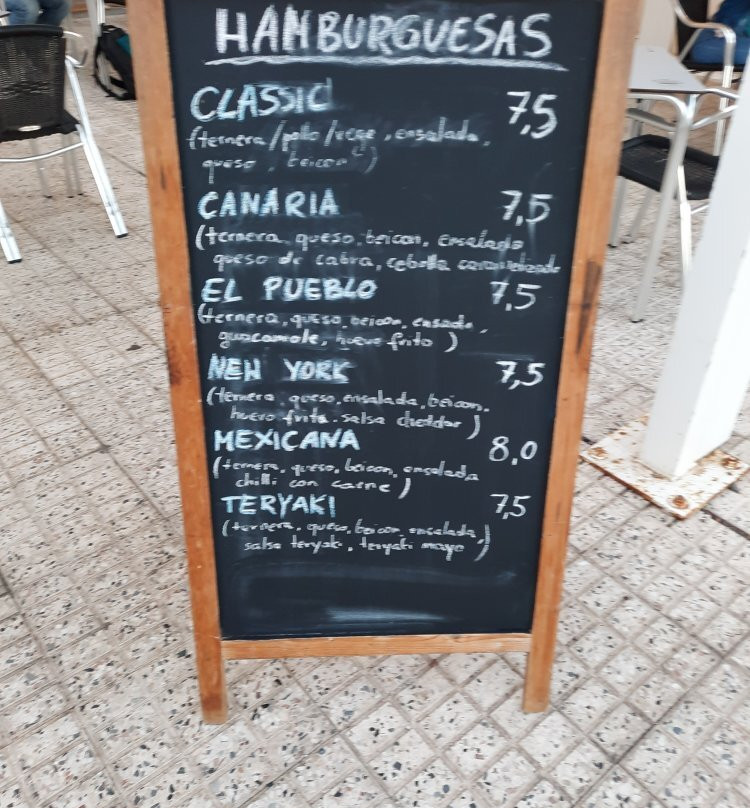 HAMBURGUESAS
CLASSIC 7,5
(ternera/pollo/vege, ensalada,
queso, beicon)
CANARIA 7,5
(ternera, queso, beicon, ensalada
queso de cabra, cebolla caramelizada
EL PUEBLO 7,5
(ternera, queso, beicon, ensada,
guacamole, huevo frito)
NEW YORK 7,5
(ternera, queso, ensalada, beicon,
huevo frito, salsa cheddar)
MEXICANA 8,0
(ternera, queso, beicon, ensalada
chilli con carne)
TERYAKI 7,5
(ternera, queso, beicon, ensalada,
salsa teryaki, teryaki mayo)